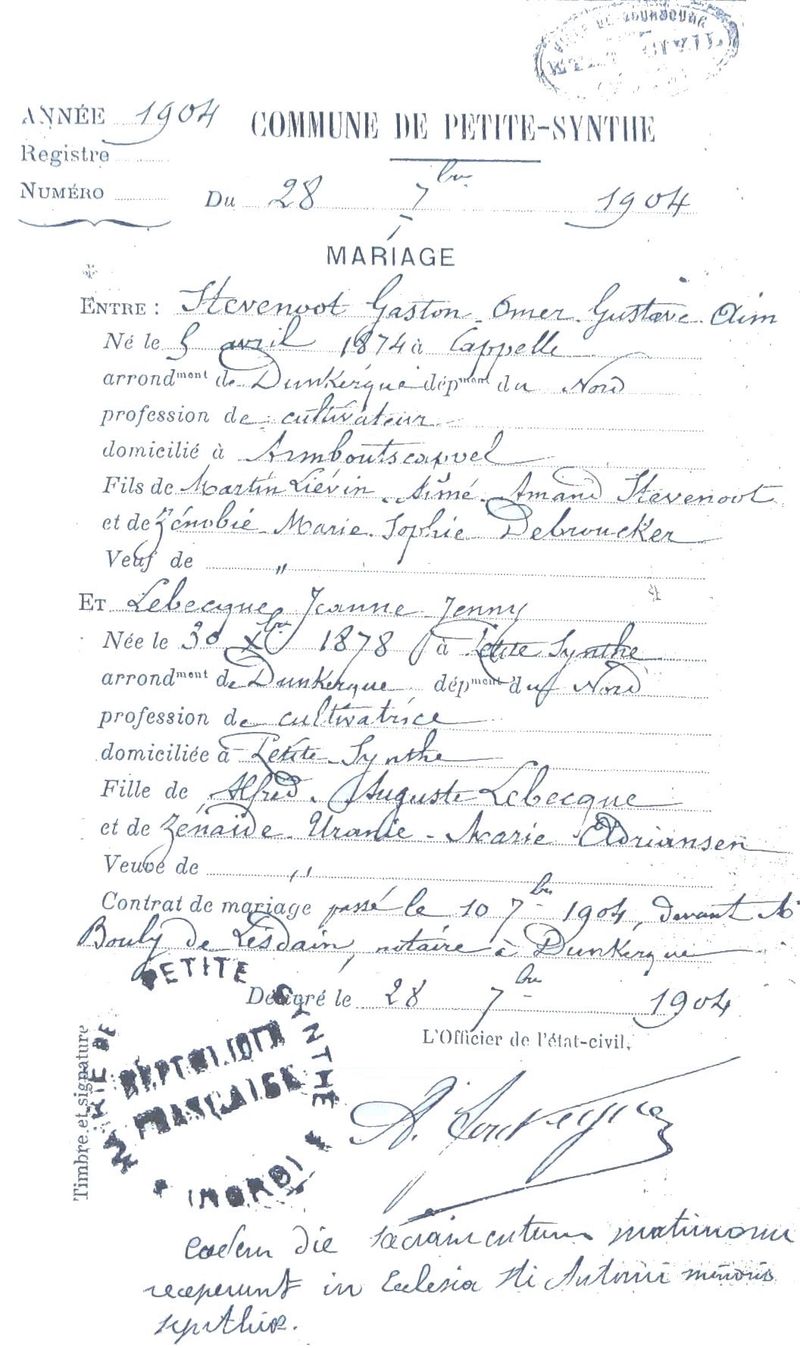 VILLE DE BOURBOURG
ETAT CIVIL
ANNÉE 1904
COMMUNE DE PETITE-SYNTHE
Registre
NUMÉRO
Du 28 7bre 1904
MARIAGE
ENTRE : Stevenoot Gaston Omer Gustave Aim
Né le 5 avril 1874 à Cappelle
arrondment de Dunkerque dépment du Nord
profession de cultivateur
domicilié à Armboutscappel
Fils de Martin Liévin Aimé Amand Stevenoot
et de Zénobie Marie Sophie Debroucker
Veuf de "
ET Lebecque Jeanne Jenny
Née le 30 Xbre 1878 à Petite Synthe
arrondment de Dunkerque dépment du Nord
profession de cultivatrice
domiciliée à Petite-Synthe
Fille de Alfred Auguste Lebecque
et de Zénaïde Uranie Marie Adriansen
Veuve de "
Contrat de mariage passé le 10 7bre 1904, devant Me
Bouly de Lesdain, notaire à Dunkerque
Délivré le 28 7bre 1904
L'Officier de l'état-civil,
Timbre et signature
MAIRIE DE PETITE SYNTHE
RÉPUBLIQUE
FRANÇAISE
(NORD)
eodem die sacramentum matrimonii
receperunt in Ecclesia Sti Antonii minoris
synthæ.